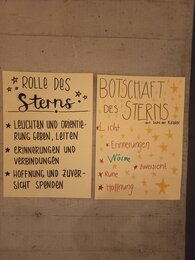 ROLLE DES
Sterns
LEUCHTEN UND ORIENTIE-
RUNG GEBEN, LEITEN
ERINNERUNGEN UND
VERBINDUNGEN
HOFFNUNG UND ZUVER-
SICHT SPENDEN
BOTSCHAFT
DES STERNS
Licht
Erinnerungen
Wärme
Zuversicht
Ruhe
Hoffnung